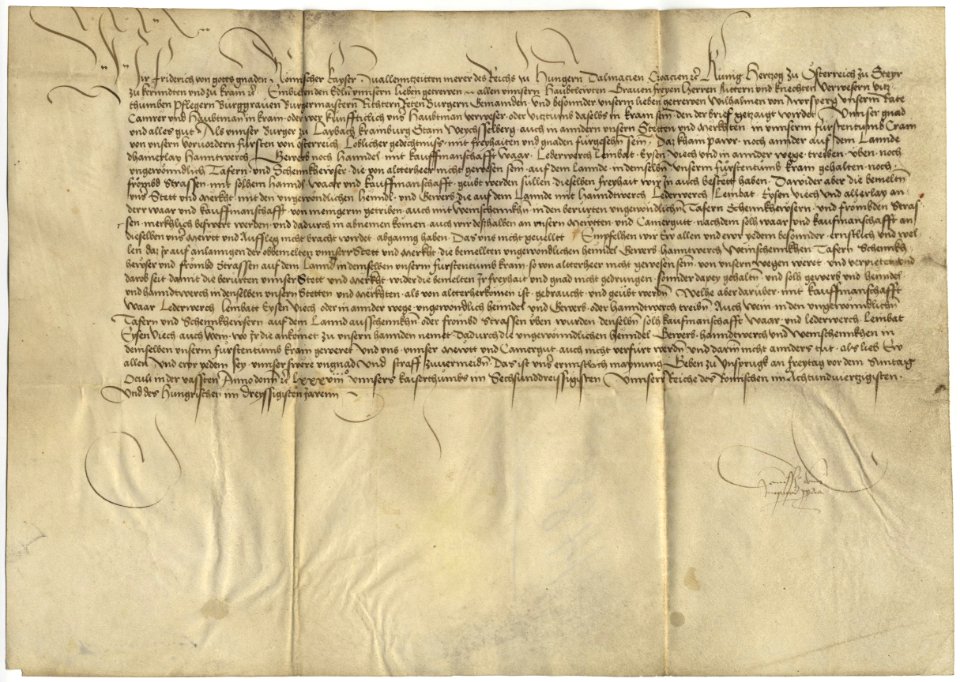 Wir Friderich von gotts gnaden Römischer Kayser zuallenntzeitten merer des Reichs zu Hungern Dalmacien Croacien etc Kunig Hertzog zu Österreich zu Steyr
zu kernndten vnd zu krain etc Embieten den Edln vnnsern lieben getrewen allen vnnsern Haubtlewten Grauen freyen Herren Rittern vnd knechten Verwesern Vitz
thumben Pflegern Burggrauen Burgermaistern Richtern Reten Burgern Gemainden vnd besonnder vnnserm lieben getrewen Wilhalmen von Awrsperg vnnserm Rate
Camrer vnd Haubtman in krain oder wer kunffticlich vns Haubtman verweser oder vitztumb daselbs in krain sein den der brief getzaigt wirdet Vnnser gnad
vnd alles gut Als vnnser Burger zu Laybach kramburg Stain Weychslberg auch in anndern vnsern Stetten vnd Merkhten in vnnserm furstentumb Crain
von vnsern voruordern fursten von osterreich Loblicher gedechtnuss mit freyhaiten vnd gnaden fursehen sein Daz kham pawr noch annder auf dem Lannde
dhainerlay Hanntwerch Gewerb noch Hanndel mit kauffmanschafft waar Lederwerch Leinbat Eysen viech vnd in annder wege treiben vben noch
vngewonndlich Tafern vnd Schennkhewser die von alterheer nicht gewesen sein auf dem Lannde in demselben vnserm furstentumb krain gehalten noch
frömbd Strassen mit solhem hanndl waar vnd kauffmanschafft geubt werden sullen dieselben freyhait wir in auch bestett haben Dawider aber die bemelten
vns Stett vnd Merkht mit den vngewondlichen henndel vnd Gewerb die auf dem Lannde mit Hanndtwerch Lederwerch Leinbat Eysen viech vnd allerlay an
der waar vnd kauffmanschafft von menigern getriben auch mit Weinschennkhn in den berurten vngewondlichen Tafern Schennkhewsern vnd frombden Stras
sen merklich beswert werden vnd dadurch in abnemen komen auch wir desthalben an vnsern Meutten vnd Camergut nachdem solh waar vnd kaufmanschafft an
dieselben vns Mewt vnd Aufsleg nicht bracht wurdet abganng haben Das vns nicht geuellet Emphelhen wir Ew allen vnd ewr yedem besonder ernstlich vnd wel
len daz ir auf anlanngen der obemelten vnnser Stett vnd Merkht die bemellten vngewondlichen henndel Gewerb hanntwerch Weinschennkhen Tafern Schennkh
hewser vnd frombd Strassen auf dem Lannd in demselben vnserm furstentumb krain so von alterheer nicht gewesen sein von vnsern wegen weret vnd verpietet vnd
darob seit damit die berurten vnnser Stett vnd Merkht wider die bemelten ir freyhait vnd gnad nicht gedrungen sonnder darey gehalten vnd solh gewerb vnd henndel
vnd hanndtwerch in denselben vnsern Stetten vnd Merkhten als von alterherkomen ist gebraucht vnd geubt werdn Welhe aber daruber mit kauffmanschafft
waar Lederwerch leinbat Eysen viech oder in annder wege vngewondlich henndel vnd Gewerb oder hanndtwerch treibn Auch Wein in den vngewöndlichn
Tafern vnd Schennkhewsern auf dem Lannd ausschennkhn oder frombd Strassen vben wurden denselbn solh kaufmanschafft Waar vnd lederwerch Leinbat
Eysen Viech auch Wein wo ir die ankomet zu vnsern hannden nemet Dadurch die vngewondlichen henndel Gewerb hanndtwerch vnd Weinschennkhen in
demselben vnserm furstentumb krain geweret vnd vns vnnser Mewtt vnd Camergut auch nicht verfurt werdn vnd darinn nicht annders tut als lieb Ew
allen vnd ewr yedem sey vnnser swere vngnad vnd straff zuuermeidn Das ist vns ernstlich maynung Geben zu Ynsprugk an freytag vor dem Suntag
Oculi in der vassten Anno domini etc lxxxviij Vnnsers kaiserthumbs im Sechsunddreissigisten Vnnserr Reiche des Romischen im Achtundviertzigisten
Vnd des Hungrischen im dreyssigisten jaren